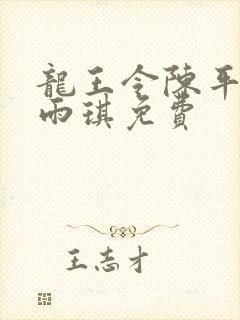 龍王令陳平
雨琪免費
王志才